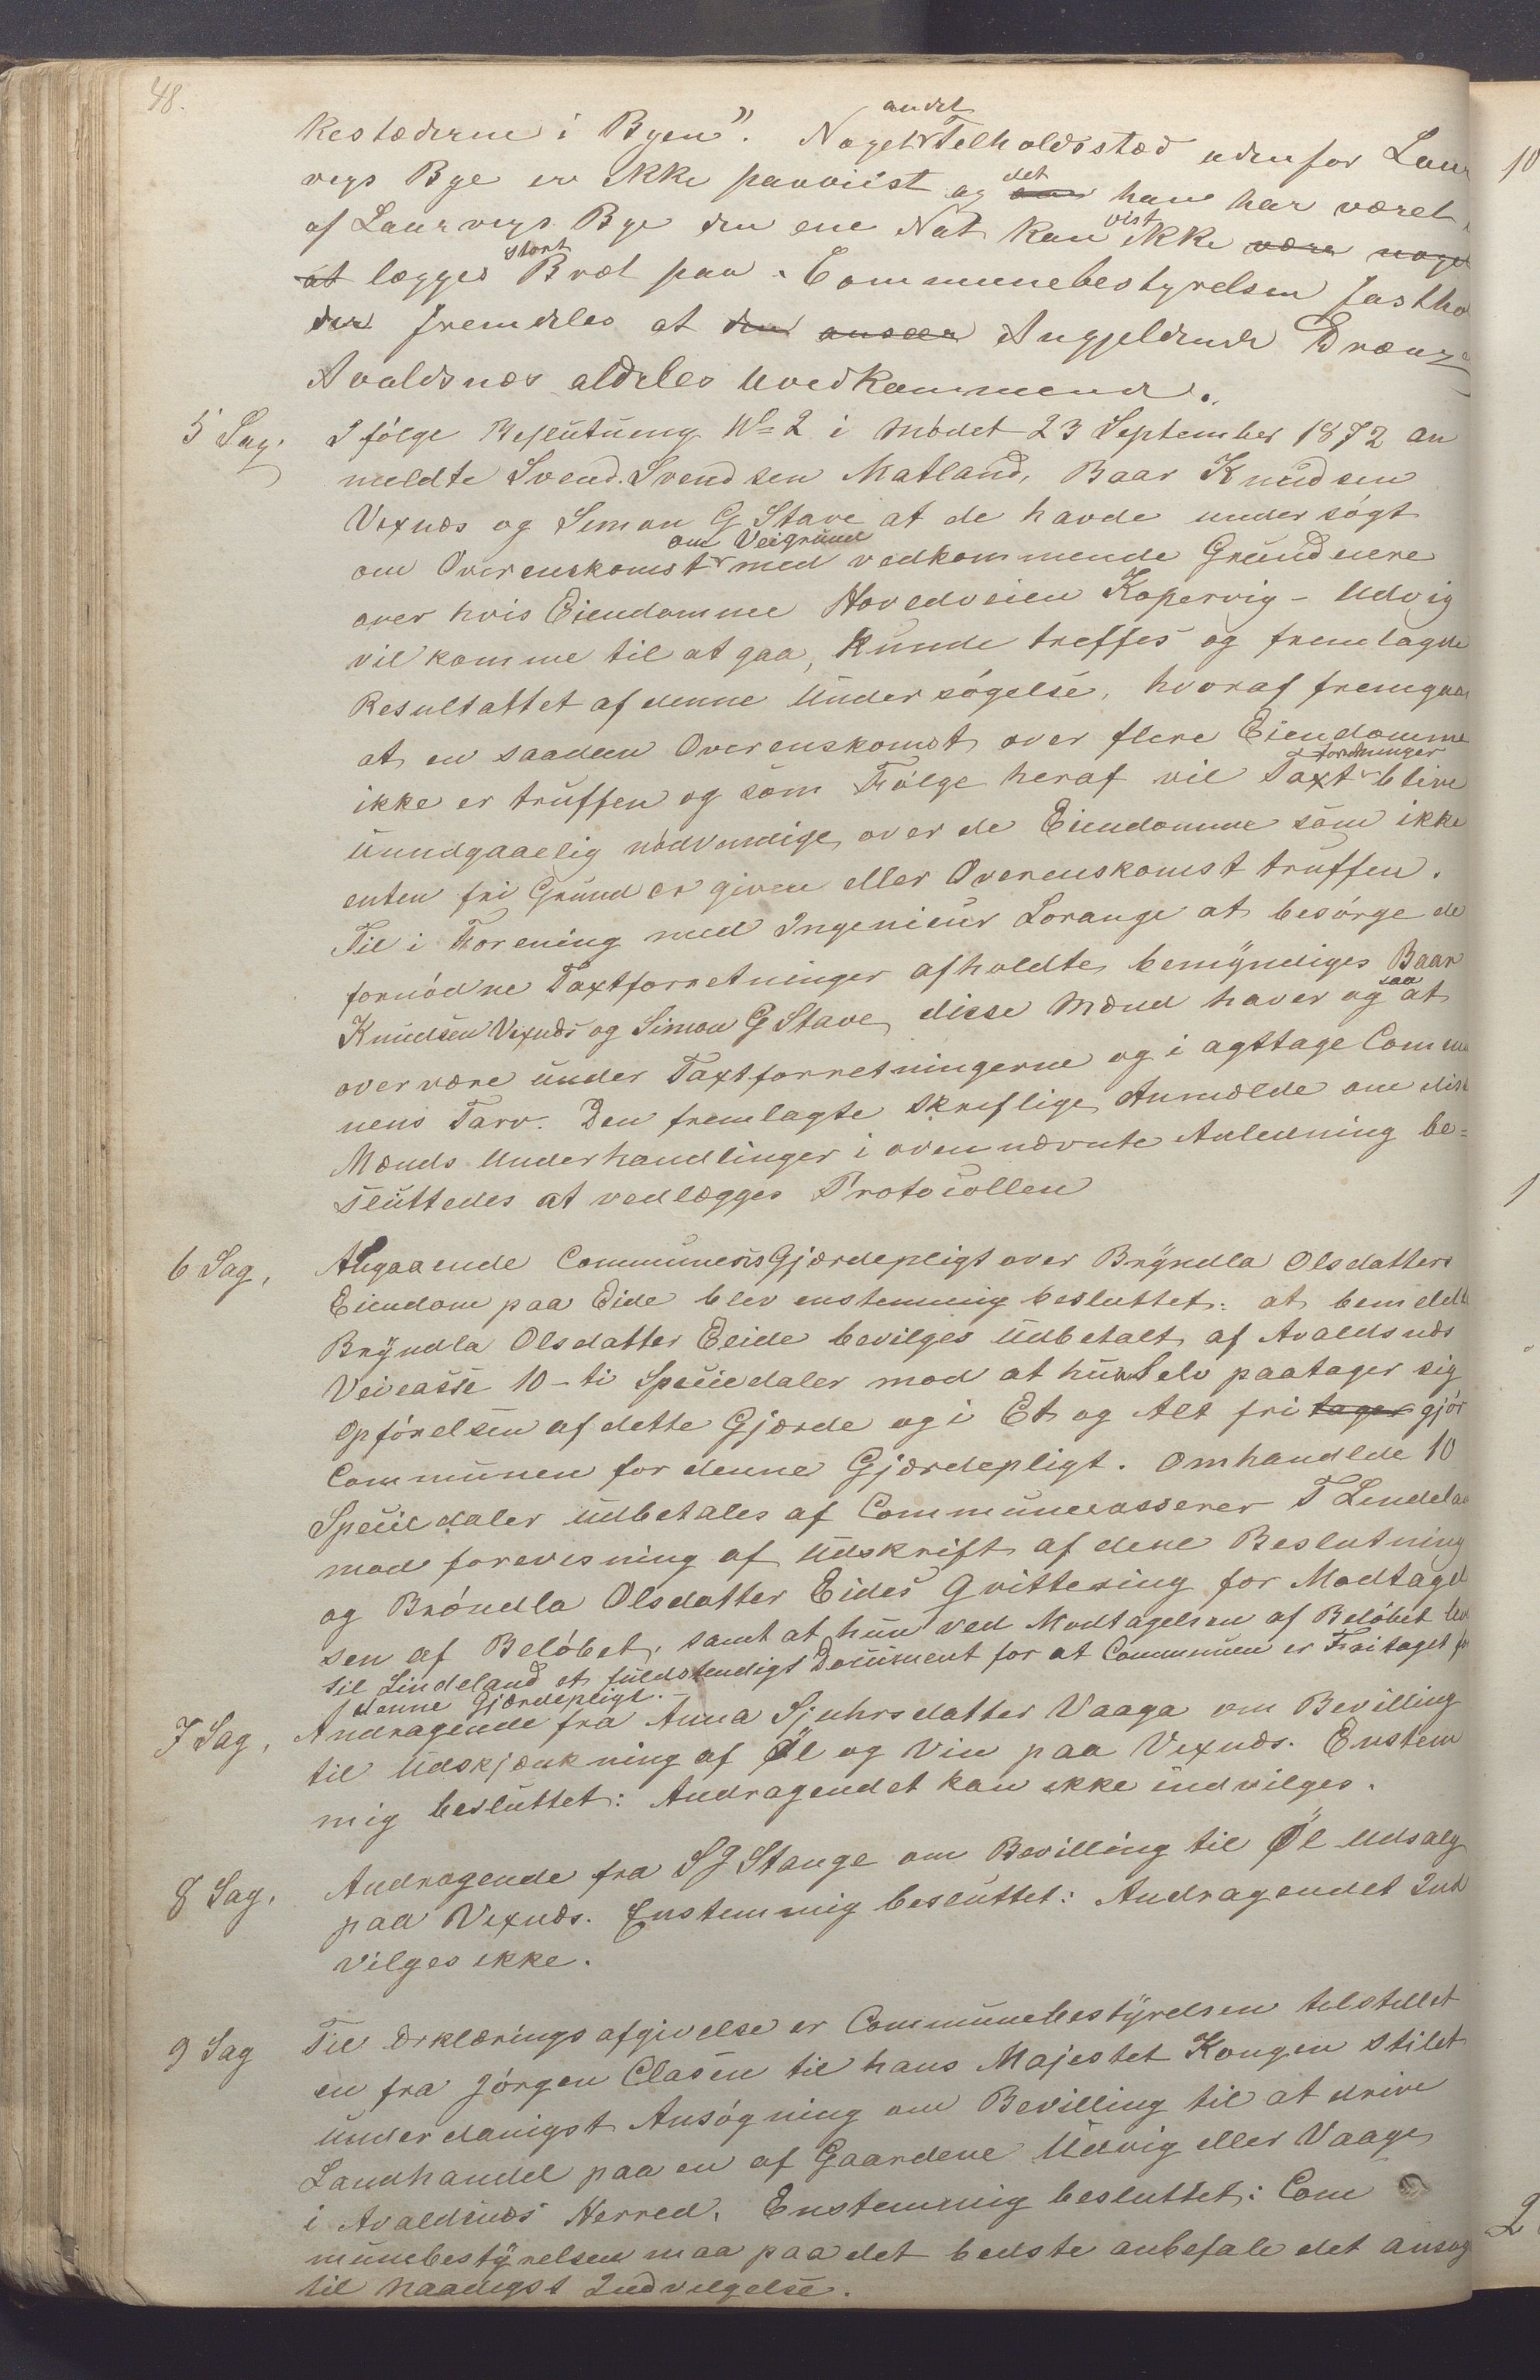 48.
andet
kestæderne i Byen". Noget Tilholdssted udenfor Laur
det
vigs Bye er ikke paaviist og han har været
vist
af Laurvigs Bye den ene Nat kan ikke være noget
stort
at lægges Bræt paa. Communebestyrelsen fasthol
der fremdeles at den anseer Angjeldende
Avaldsnæs aldeles uvedkommende.
5 Sag. Ifølge Beslutning No 2 i Mødet 23 September 1872 an
meldte Svend Svendsen Matland, Baar Knudsen
Vexnæs og Simon G Stave at de havde undersøgt
om Veigrund
om Overenskomst med vedkommende Grundeiere
over hvis Eiendomme Hovedveien Kopervig - Udvig
vil komme til at gaa, kunde treffes og fremlagde
Resultattet af denne Undersøgelse, hvoraf fremgaar
at en saadan Overenskomst over flere Eiendomme
forretninger
ikke er truffen og som Følge heraf vil Taxt blive
uundgaaelig nødvendige over de Eiendomme som ikke
enten fri Grund er given eller Overenskomst truffen.
Til i Forening med Ingenieur Lorange at besørge de
fornødne Taxtforretninger afholdte bemyndiges Baar
saa
Knudsen Vexnæs og Simon G Stave, disse Mænd haver og at
overvære under Taxtforretningerne og i agttage Commu
nens Tarv. Den fremlagte skriflige Anmelde om disse
Mænds Underhandlinger i ovennævnte Anledning be=
sluttedes at vedlægges Protocollen
6 Sag, Angaaende Communens Gjærdepligt over Bryndla Olsdatters
Eiendom paa Eide blev enstemmig besluttet: at bemeldte
Bryndla Olsdatter Eeide bevilges Udbetalt af Avaldsnæs
Veicasse 10-ti Speciedaler mod at hun selv paatager sig
Opførelsen af dette Gjærde og i Et og Alt fri tager gjør
Communen for denne Gjærdepligt. Omhandlde 10
Speciedaler udbetales af Communecasserer T Lindeland
mod forevisning af Udskrift af dene Beslutning
og Bröndla Olsdatter Eides Qvittering for Modtagel
sen af Beløbet, samt at hun ved Modtagelsen af Beløbet lev
til Lindeland et fuldstendigt Document for at Communen er Fritaget for
denne Gjærdepligt.
7 Sag, Andragende fra Anna Sjuhrsdatter Vaaga om Bevilling
til Udskjænkning af Øl og Vin paa Vexnæs. Enstem
mig besluttet: Andragendet kan ikke indvilges.
8 Sag, Andragende fra S G Stange om Bevilling til Øl Udsalg
paa Vexnæs. Enstemmig besluttet: Andragendet Ind
vilges ikke.
9 Sag Til Erklæringsafgivelse er Communebestyrelsen tilstillet
en fra Jørgen Clasen til hans Majestet Kongen stilet
underdanigst Ansøgning om Bevilling til at drive
Landhandel paa en af Gaardene Udvig eller Vaage
i Avaldsnæs Herred. Enstemmig besluttet: Com
munebestyrelsen maa paa det bedste anbefale det ansøg
til naadigst Indvilgelse.
10